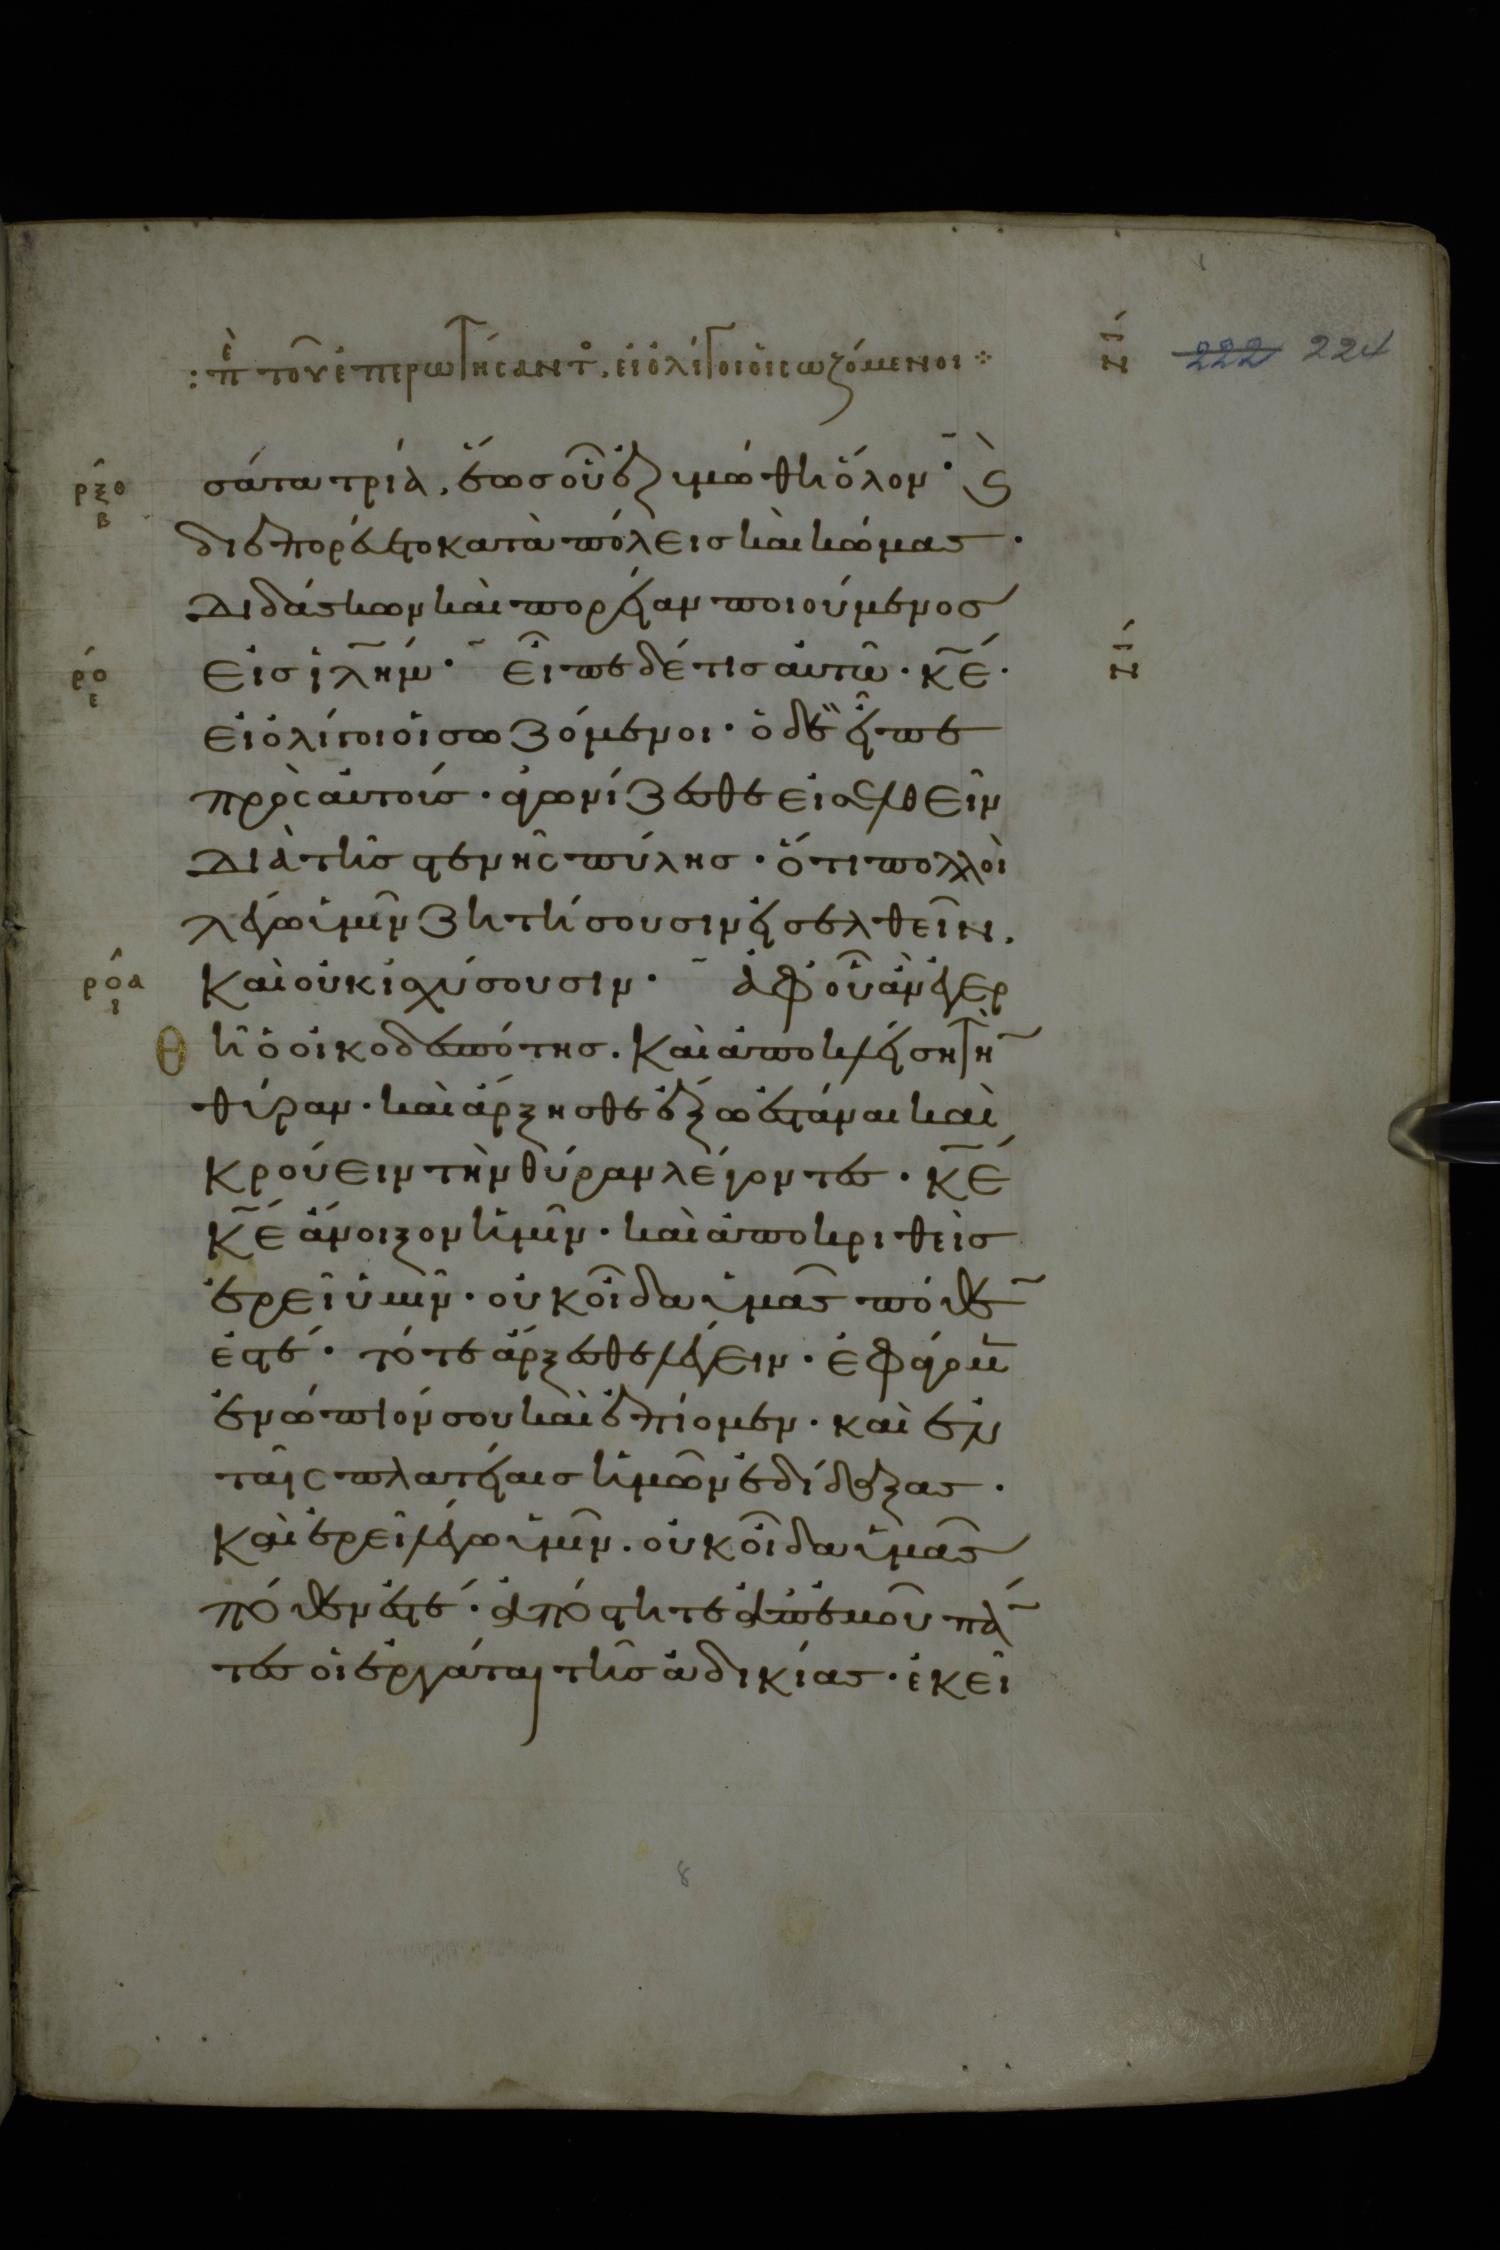 :ἐπ τοῦ ἐπερωτήσαντο, εἰ ὀλίγοι οἱ σωζόμενοι ⁘ νζʹ
222 224
ρξθ
β
σάτα τρία, ἕως οὗ ἐζυμώθη ὅλον· καὶ
διεπορεύετο κατὰ πόλεις καὶ κώμας ·
διδάσκων καὶ πορείαν ποιούμενος
ρο
ε
εἰς ἰλημ· εἶπε δέ τις αὐτῶ· κε· νζʹ
εἰ ὀλίγοι οἱ σωζόμενοι· ὁ δὲ εἶπε
πρὸς αὐτούς· ἀγωνίζεσθε εἰσελθεῖν
διὰ τῆς στενῆς πύλης· ὅτι πολλοὶ
λέγω ὑμῖν ζητήσουσιν εἰσελθεῖν,
ροα
ι
καὶ οὐκ ἰσχύσουσιν· ἀφ οὗ ἂν ἐγερ
θῆ ὁ οἰκοδεσπότης. καὶ ἀποκλείση τὴ̅
θύραν· καὶ ἄρξησθε ἔξω ἑστάναι καὶ
κρούειν τὴν θύραν λέγοντες· κε
κε ἄνοιξον ἡμῖν· καὶ ἀποκριθεὶς
ἐρεῖ ὑμῖν· οὐκ οἶδα ὑμᾶς πόθε̅
ἐστέ· τότε ἄρξεσθε λέγειν· ἐφάγομ̅
ἐνώπιόν σου καὶ ἐπίομεν· καὶ ἐν
ταῖς πλατείαις ἡμῶν ἐδίδαξας·
καὶ ἐρεῖ λέγω ὑμῖν. οὐκ οἶδα ὑμᾶς
πόθεν ἐστέ· ἀπόστητε ἀπ ἐμοῦ πά̅
τες οἱ ἐργάται τῆς ἀδικίας· ἐκεῖ
8